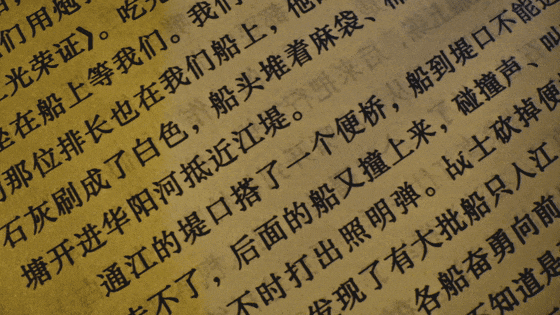 们用炮
光荣证》。吃
坐在船上等我们。我们
那位排长也在我们船上，他
石灰刷成了白色，船头堆着麻袋、
塘开进华阳河抵近江堤。
通江的堤口搭了一个便桥，船到堤口不能
不了，后面的船又撞上来，碰撞声、叫
不时打出照明弹。战士砍掉便
发现了有大批船只入江
各船奋勇向前
不知道是